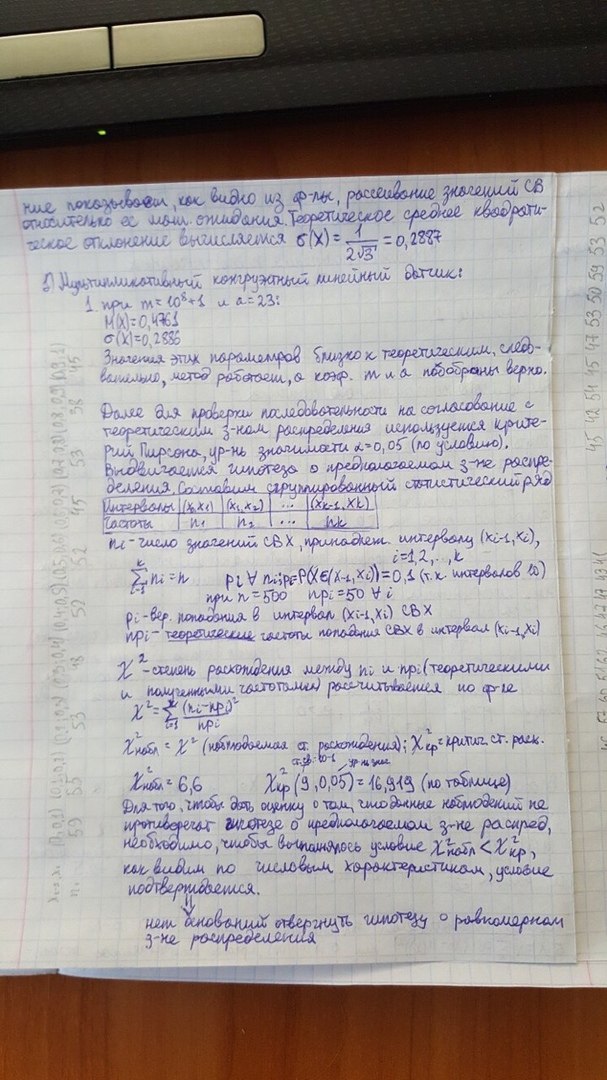 ние показывает, как видно из ф-лы, рассеивание значений СВ
относительно ее мат. ожидания. Теоретическое среднее квадрати-
ческое отклонение вычисляется σ(X) = 1/(2√3) = 0,2887
Мультипликативный конгруэнтный линейный датчик:
1. при m = 10⁸+1 и a = 23:
M(X) = 0,4761
σ(X) = 0,2886
Значения этих параметров близко к теоретическим, следо-
вательно, метод работает, а коэф. m и a подобраны верно.
Далее для проверки последовательности на согласование с
теоретическим з-ном распределения используется крите-
рий Пирсона, ур-нь значимости α = 0,05 (по условию).
Выдвигается гипотеза о предполагаемом з-не распре-
деления. Составим сгруппированный статистический ряд
Интервалы (x₀,x₁) (x₁,x₂) ... (xₖ₋₁,xₖ)
Частоты n₁ n₂ ... nₖ
nᵢ - число значений СВ X, принадлеж. интервалу (xᵢ₋₁,xᵢ),
i = 1,2,..,k
∑ᵢ₌₁ᵏ nᵢ = n pᵢ ∀ nᵢ; pᵢ = P(X∈(xᵢ₋₁,xᵢ)) = 0,1 (т.к. интервалов 10)
при n = 500 npᵢ = 50 ∀ i
pᵢ - вер. попадания в интервал (xᵢ₋₁,xᵢ) СВ X
npᵢ - теоретические частоты попадания СВ X в интервал (xᵢ₋₁,xᵢ)
χ² - степень расхождения между nᵢ и npᵢ (теоретическими
и полученными частотами) рассчитывается по ф-ле
χ² = ∑ᵢ₌₁ᵏ (nᵢ-npᵢ)²/npᵢ
χ²набл = χ² (наблюдаемая ст. расхождения); χ²кр = критич. ст. расх.
χ²набл = 6,6 χ²кр (9, 0,05) = 16,919 (по таблице)
Для того, чтобы дать оценку о том, что данные наблюдений не
противоречат гипотезе о предполагаемом з-не распред,
необходимо, чтобы выполнялось условие χ²набл < χ²кр,
как видим по числовым характеристикам, условие
подтверждается.
⇓
нет оснований отвергнуть гипотезу о равномерном
з-не распределения
45 42 54 45 47 53 50 59 53 52